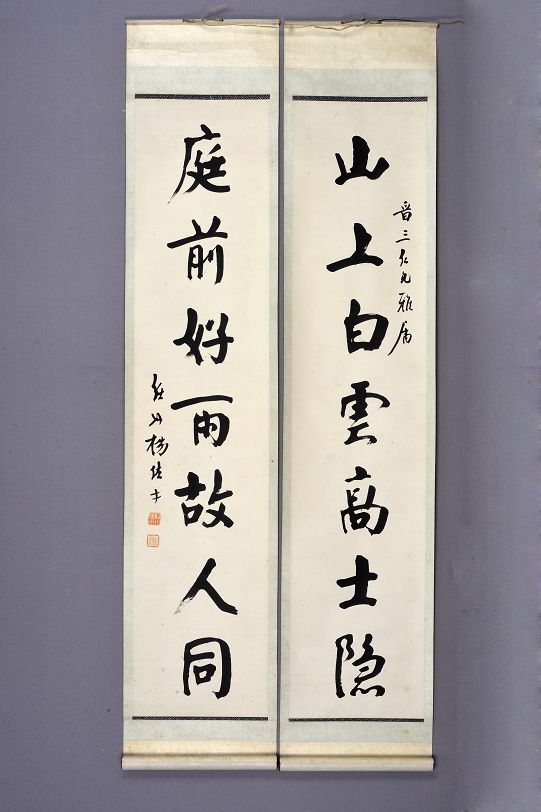 山上白雲高士隐
晋三仁兄雅属
庭前好雨故人同
楊